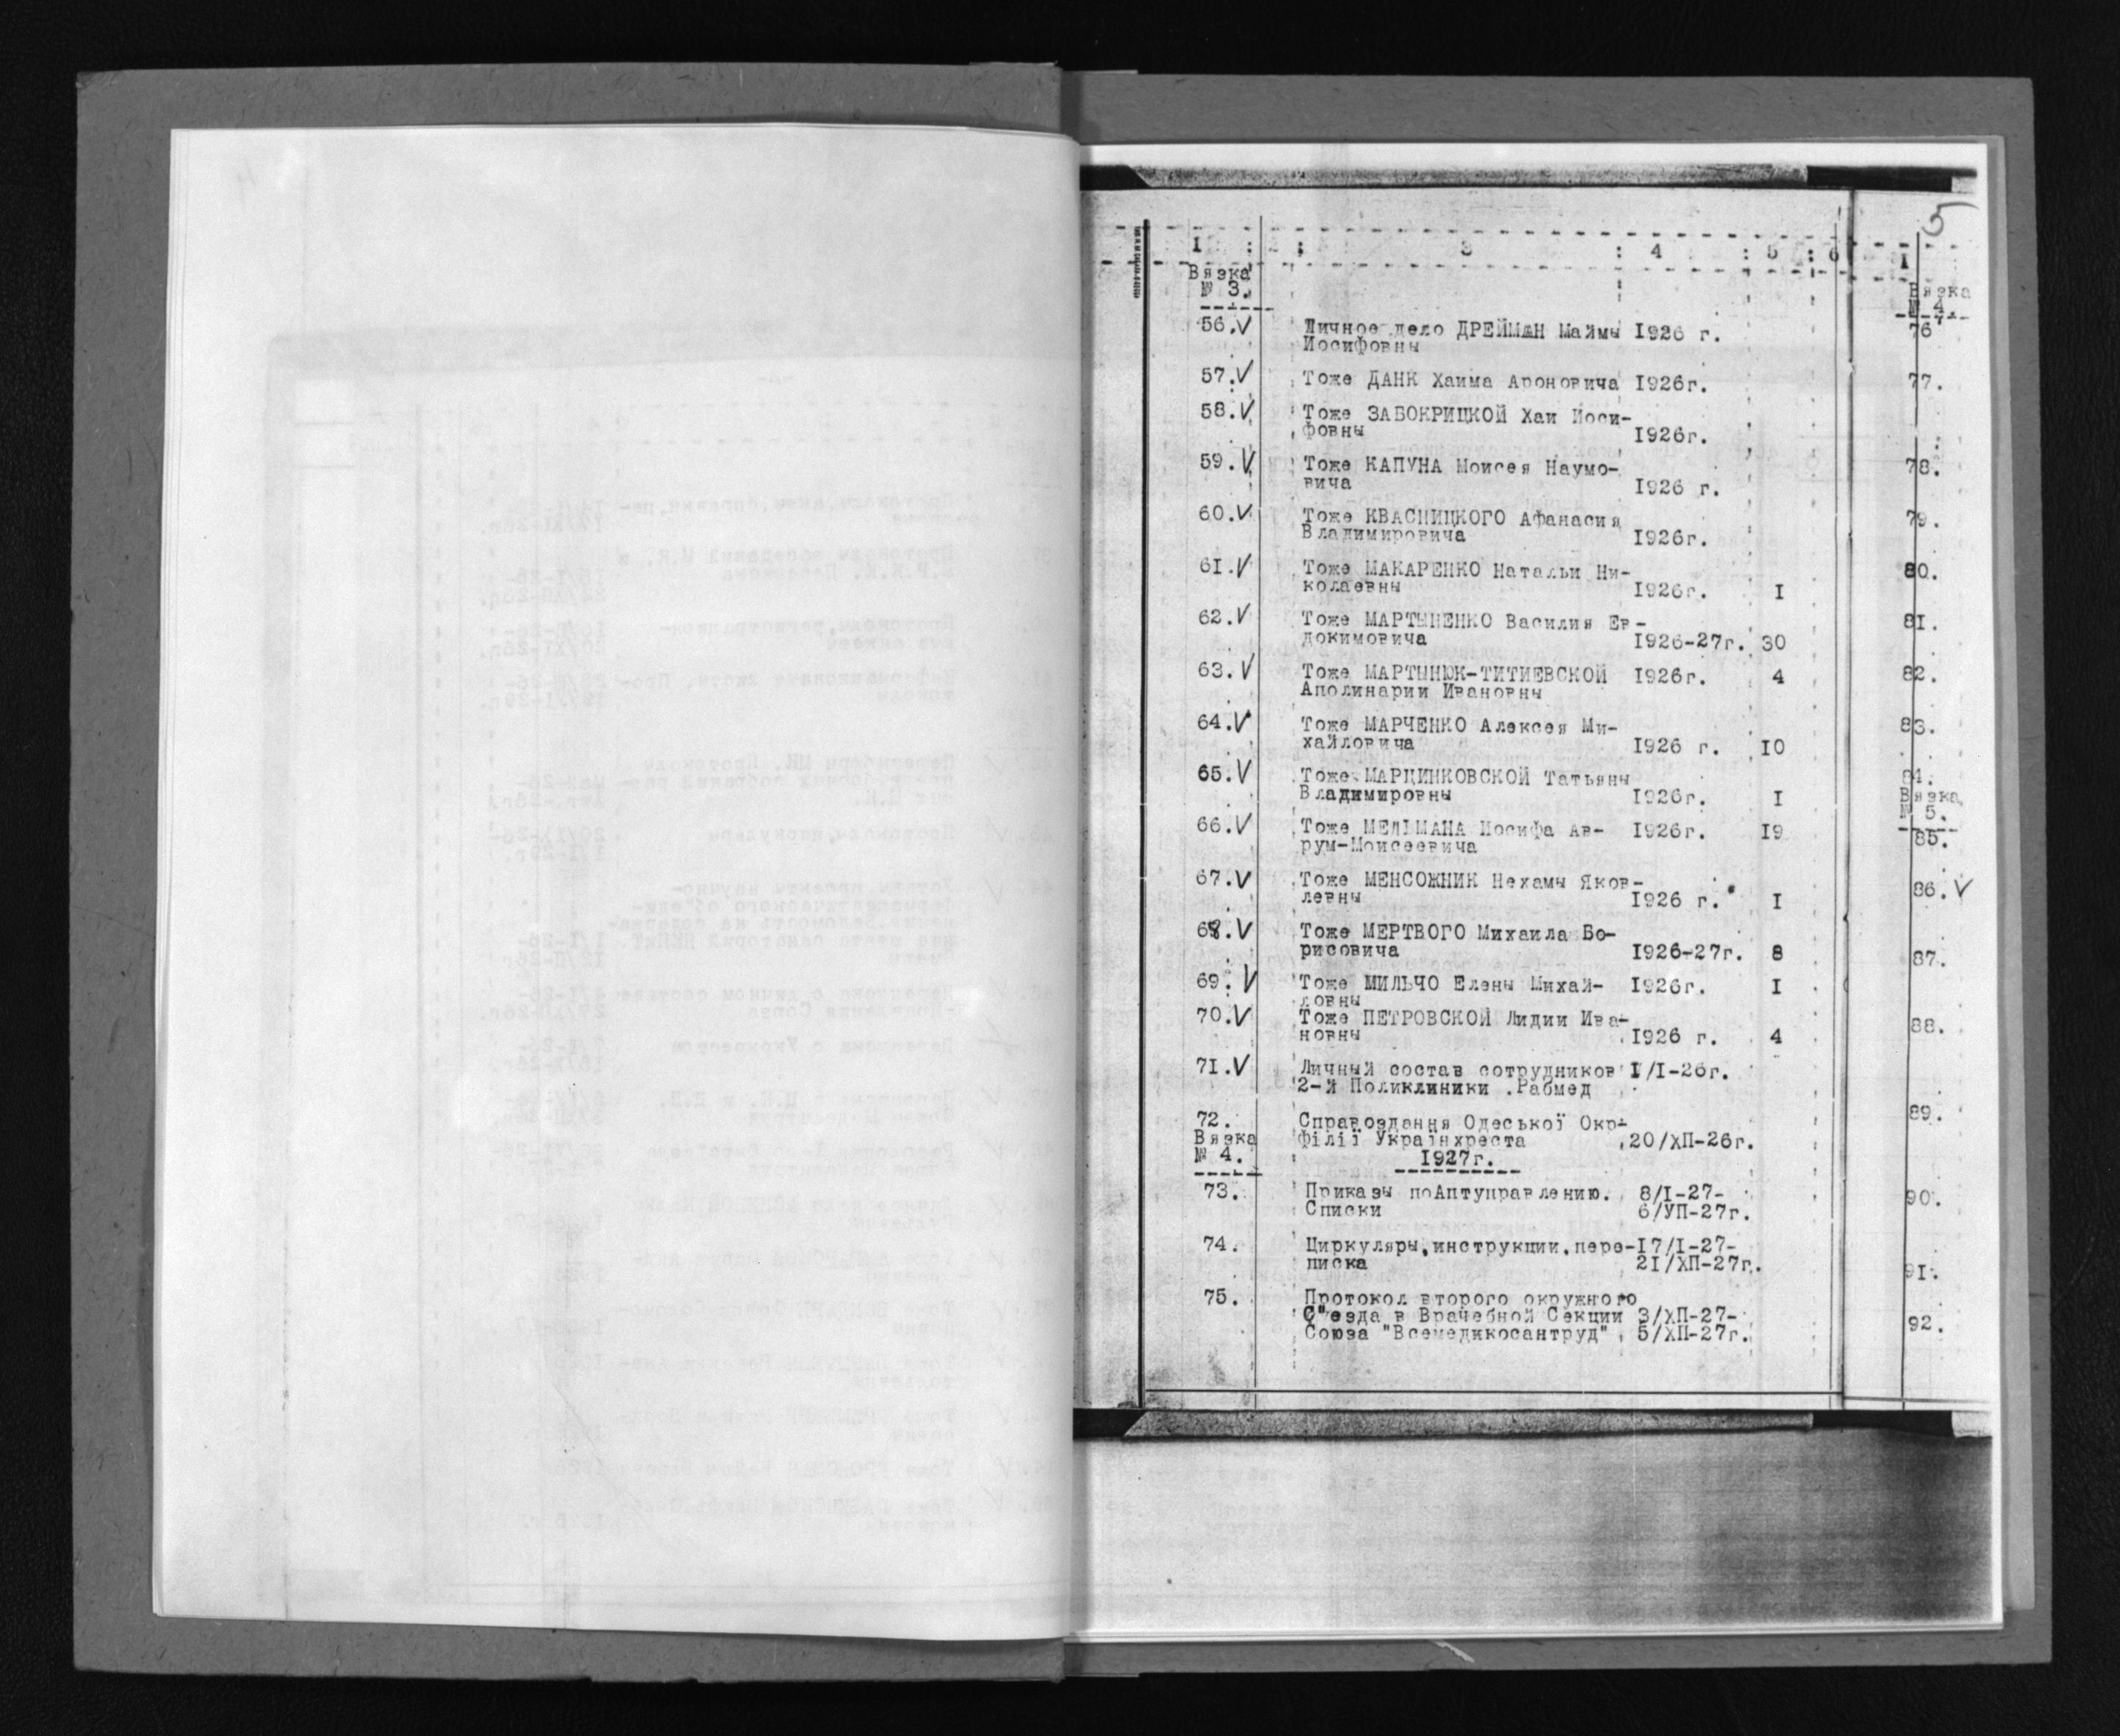 5
I : 2 : 3 : 4 : 5 : 6
Вязка
№ 3.
56.V Личное дело ДРЕЙМАН Маймы I926 г.
Иосифовны
57.V Тоже ДАНК Хаима Ароновича I926г.
58.V Тоже ЗАБОКРИЦКОЙ Хаи Иоси-
фовны I926г.
59.V Тоже КАПУНА Моисея Наумо-
вича I926 г.
60.V Тоже КВАСНИЦКОГО Афанасия
Владимировича I926г.
6I.V Тоже МАКАРЕНКО Натальи Ни-
колаевны I926г. I
62.V Тоже МАРТЫНЕНКО Василия Ев-
докимовича I926-27г. 30
63.V Тоже МАРТЫНЮК-ТИТИЕВСКОЙ I926г. 4
Аполинарии Ивановны
64.V Тоже МАРЧЕНКО Алексея Ми-
хайловича I926 г. I0
65.V Тоже МАРЦИНКОВСКОЙ Татьяны
Владимировны I926г. I
66.V Тоже МЕЛЬМАНА Иосифа Ав- I926г. I9
рум-Моисеевича
67.V Тоже МЕНСОЖНИК Нехамы Яков-
левны I926 г. I
68.V Тоже МЕРТВОГО Михаила Бо-
рисовича I926-27г. 8
69.V Тоже МИЛЬЧО Елены Михай- I926г. I
ловны
70.V Тоже ПЕТРОВСКОЙ Лидии Ива-
новны I926 г. 4
7I.V Личный состав сотрудников I/I-26г.
2-й Поликлиники .Рабмед
72. Справоздання Одеської Окр-
Вязка філії Українхреста 20/ХП-26г.
№ 4. I927г.
73. Приказы поАптуправлению. 8/I-27-
Списки 6/УП-27г.
74. Циркуляры,инструкции,пере-I7/I-27-
писка 2I/ХП-27г.
75. Протокол второго окружного
С"езда в Врачебной Секции 3/ХП-27-
Союза "Всемедикосантруд" 5/ХП-27г.
I
Вязка
№ 4.
76
77.
78.
79.
80.
8I.
82.
83.
84.
Вязка
№ 5.
85.
86.V
87.
88.
89.
90.
9I.
92.